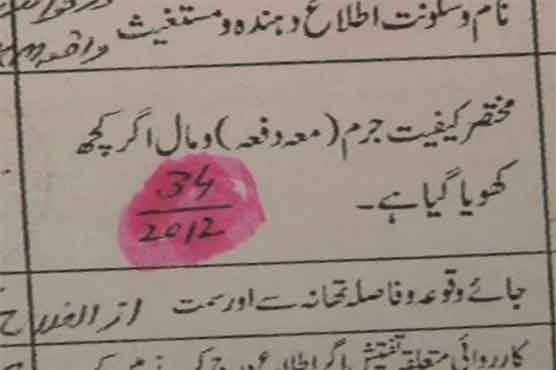 نام و سکونت اطلاع دہندہ و مستغیث
مختصر کیفیت جرم (معہ دفعہ) و مال اگر کچھ
کھویا گیا ہے۔
34
2012
جائے وقوعہ و فاصلہ تھانہ سے اور سمت از
کارروائی متعلقہ تفتیش اگر اطلاع درج کرنے میں کچھ